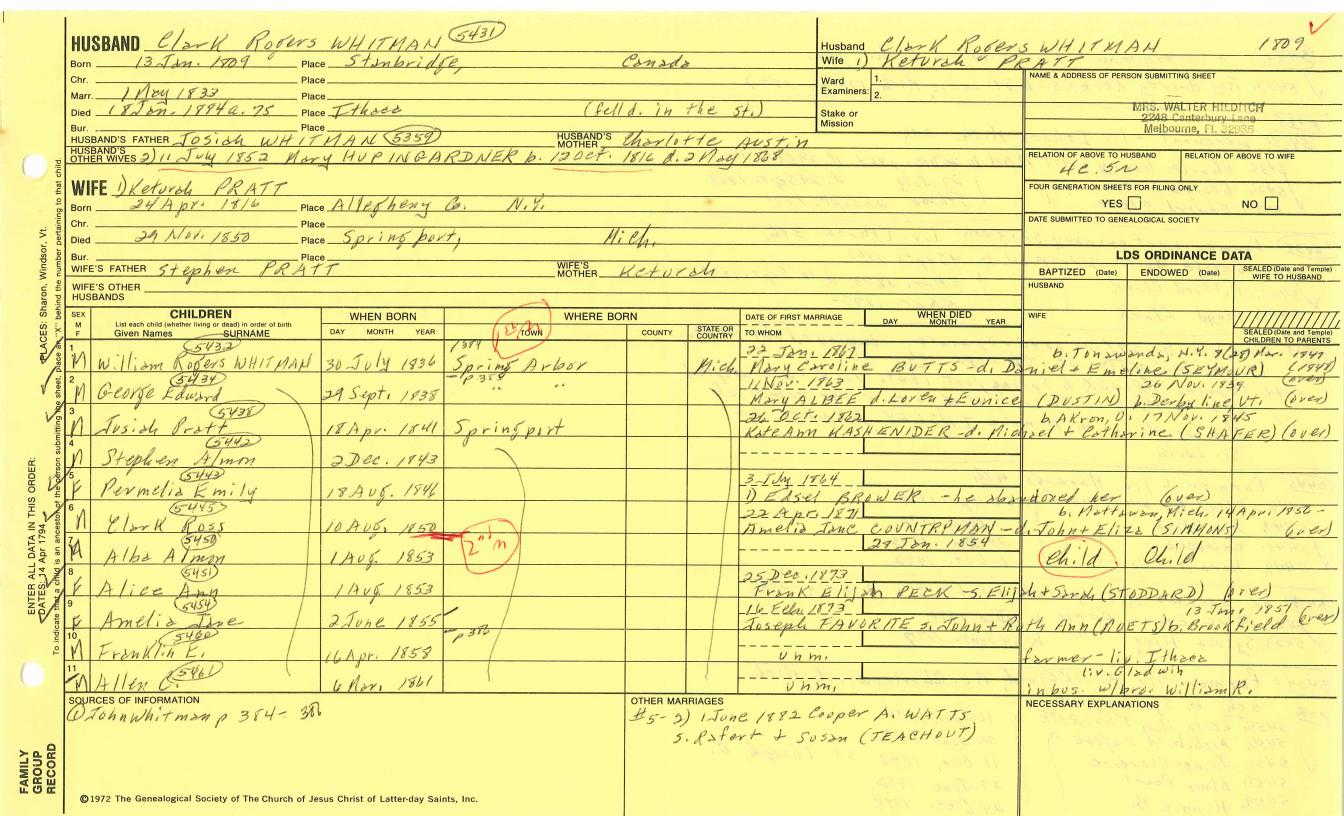 HUSBAND Clark Rogers WHITMAN 5431
Born 13 Jan. 1809 Place Stanbridge, Canada
Chr. Place
Marr. 1 May 1833 Place
Died 18 Jan. 1884 a. 75 Place Ithaca (fell d. in the st.)
Bur. Place
HUSBAND'S FATHER Josiah WHITMAN 5359 HUSBAND'S MOTHER Charlotte AUSTIN
HUSBAND'S OTHER WIVES 2) 11 July 1852 Mary HUPINGARDNER b. 12 Oct. 1816 d. 2 May 1868
WIFE 1) Keturah PRATT
Born 24 Apr. 1816 Place Allegheny Co. N.Y.
Chr. Place
Died 29 Nov. 1850 Place Springport, Mich.
Bur. Place
WIFE'S FATHER Stephen PRATT WIFE'S MOTHER Keturah
WIFE'S OTHER HUSBANDS
Husband Clark Rogers WHITMAN 1809
Wife 1) Keturah PRATT
Ward Examiners: 1. 2.
Stake or Mission
NAME & ADDRESS OF PERSON SUBMITTING SHEET
MRS. WALTER HILDITCH
2248 Canterbury Lane
Melbourne, Fl. 32935
RELATION OF ABOVE TO HUSBAND RELATION OF ABOVE TO WIFE
4c. 5r
FOUR GENERATION SHEETS FOR FILING ONLY
YES NO
DATE SUBMITTED TO GENEALOGICAL SOCIETY
LDS ORDINANCE DATA
BAPTIZED (Date) ENDOWED (Date) SEALED (Date and Temple) WIFE TO HUSBAND
HUSBAND
WIFE
SEALED (Date and Temple) CHILDREN TO PARENTS
SEX M F CHILDREN List each child (whether living or dead) in order of birth Given Names SURNAME
WHEN BORN DAY MONTH YEAR
WHERE BORN TOWN COUNTY STATE OR COUNTRY
DATE OF FIRST MARRIAGE TO WHOM
WHEN DIED DAY MONTH YEAR
1 M 5432 William Rogers WHITMAN 30 July 1836 p 384 Spring Arbor Mich 22 Jan. 1867 Mary Caroline BUTTS - d. Daniel + Emeline (SEYMOUR) b. Tonawanda, N.Y. 8(28) Mar. 1847 (1848) (over)
2 M 5434 George Edward 29 Sept. 1838 p 385 " " 11 Nov. 1863 Mary ALBEE d. Loren + Eunice (DUSTIN) 26 Nov. 1839 b. Derby line VT. (over)
3 M 5438 Josiah Pratt 18 Apr. 1841 Springport 26 Oct. 1862 Kate Ann KASHENIDER - d. Michael + Catharine (SHAFER) b. Akron, O. 17 Nov. 1845 (over)
4 M 5442 Stephen Almon 2 Dec. 1843
5 F 5443 Permelia Emily 18 Aug. 1846 3 July 1864 1) Edsel BROWER - he abandoned her (over)
6 M 5445 Clark Ross 10 Aug. 1850 22 Apr. 1871 Amelia Jane COUNTRYMAN - d. John + Eliza (SIMMONS) b. Mattawan, Mich. 14 Apr. 1856 - (over)
7 M 5450 Alba Almon 1 Aug. 1853 2nd m 29 Jan. 1854 Child Child
8 F 5451 Alice Ann 1 Aug 1853 25 Dec. 1873 Frank Elijah PECK - s. Elijah + Sarah (STODDARD) (over)
9 F 5454 Amelia Jane 2 June 1855 p 386 16 Feb. 1873 Joseph FAVORITE s. John + Ruth Ann b. Brookfield 13 Jan. 1851 (over)
10 M 5460 Franklin E. 16 Apr. 1858 unm. farmer - liv. Ithaca
11 M 5461 Allen C. 6 Mar. 1861 unm. liv. Gladwin in bus. w/bro. William R.
SOURCES OF INFORMATION
① John Whitman p 384 - 386
OTHER MARRIAGES
#5-2) 1 June 1882 Cooper A. WATTS
s. Rafert + Susan (TEACHOUT)
NECESSARY EXPLANATIONS
©1972 The Genealogical Society of The Church of Jesus Christ of Latter-day Saints, Inc.
FAMILY GROUP RECORD
ENTER ALL DATA IN THIS ORDER:
DATES: 14 Apr 1794
PLACES: Sharon, Windsor, Vt.
To indicate that a child is an ancestor of the person submitting the sheet, place an "X" behind the number pertaining to that child